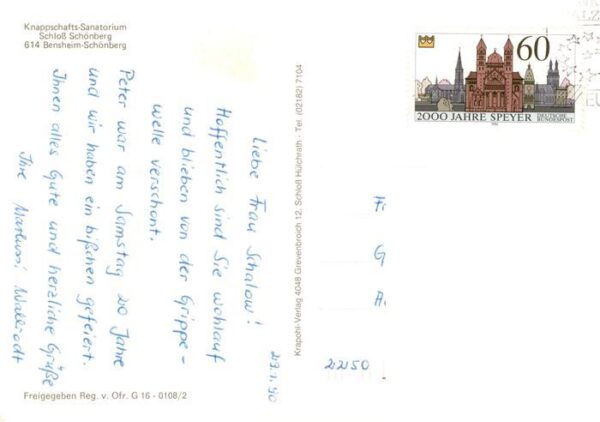 Knappschafts-Sanatorium
Schloß Schönberg
614 Bensheim-Schönberg
29.1.90
Liebe Frau Schalow!
Hoffentlich sind Sie wohlauf
und blieben von der Grippe-
welle verschont.
Peter war am Samstag 20 Jahre
und wir haben ein bißchen gefeiert.
Ihnen alles Gute und herzliche Grüße
Ihre
Freigegeben Reg. v. Ofr. G 16 - 0108/2
Krapohl-Verlag 4048 Grevenbroich 12, Schloß Hülchrath - Tel. (02182) 7104
60
2000 JAHRE SPEYER
DEUTSCHE
BUNDESPOST
F
G
A
2250